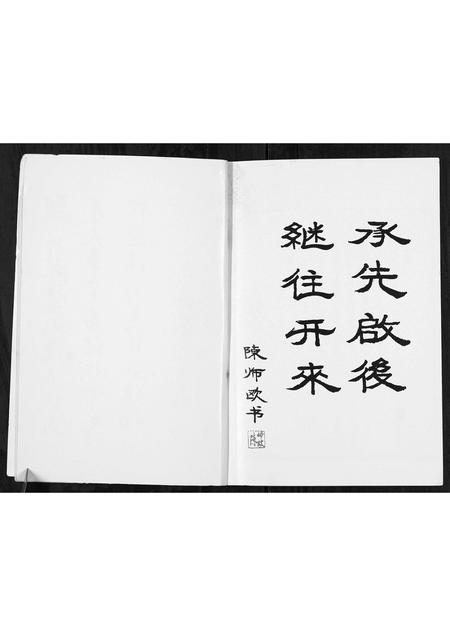 承先啟後
継往开來
陳师欧书